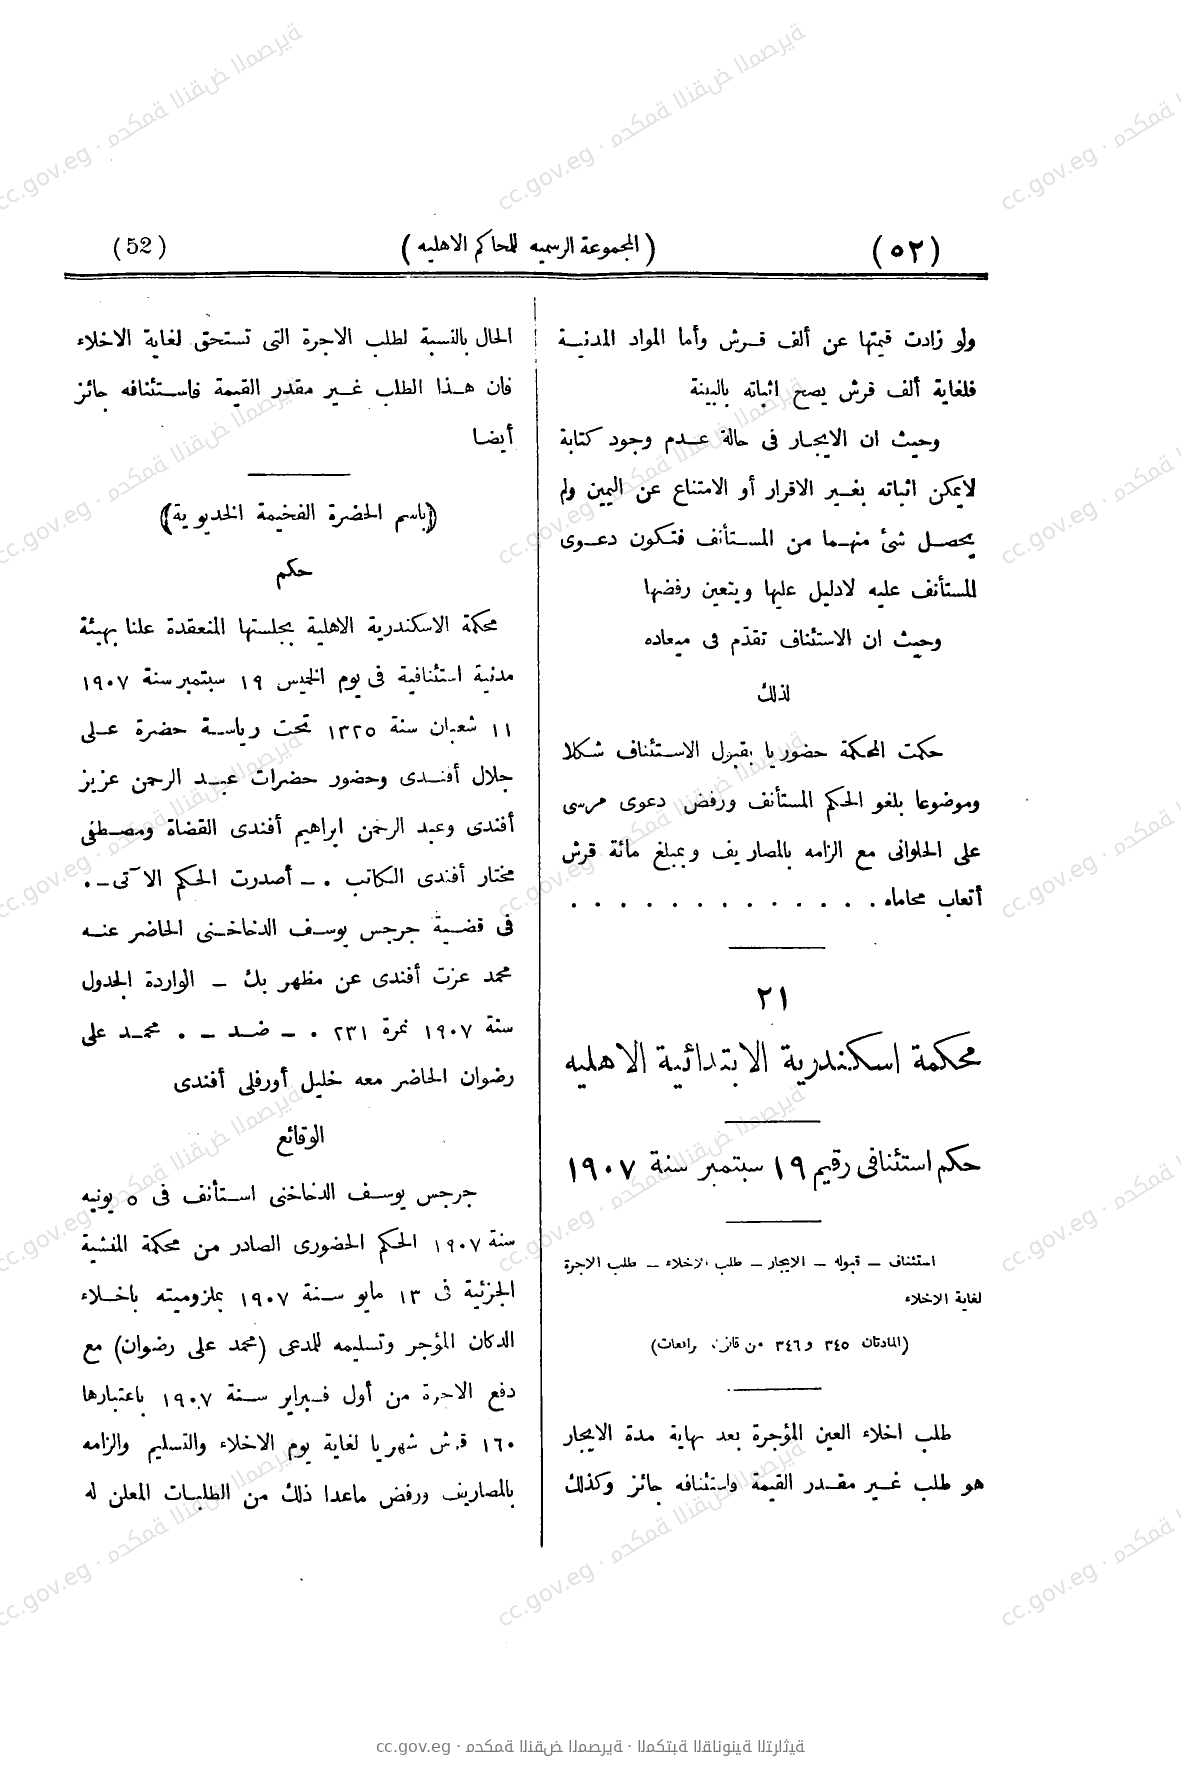 (٥٢)
(المجموعة الرسميه للمحاكم الاهليه)
(52)
ولو زادت قيمتها عن ألف قرش وأما المواد المدنية
فلغاية ألف قرش يصح اثباته بالبينة
وحيث ان الايجار فى حالة عدم وجود كتابة
لايمكن اثباته بغير الاقرار أو الامتناع عن اليمين ولم
يحصل شئ منهما من المستأنف فتكون دعوى
المستأنف عليه لادليل عليها ويتعين رفضها
وحيث ان الاستئناف تقدّم فى ميعاده
لذلك
حكمت المحكمة حضوريا بقبول الاستئناف شكلا
وموضوعا بلغو الحكم المستأنف ورفض دعوى مرسى
على الحلوانى مع الزامه بالمصاريف وبمبلغ مائة قرش
أتعاب محاماه . . . . . . . . . . . . .
٢١
محكمة اسكندرية الابتدائية الاهليه
حكم استئنافى رقيم ١٩ سبتمبر سنة ١٩٠٧
استئناف – قبوله – الايجار – طلب الاخلاء – طلب الاجرة
لغاية الاخلاء
(المادتان ٣٤٥ و٣٤٦ من قانون مرافعات)
طلب اخلاء العين المؤجرة بعد نهاية مدة الايجار
هو طلب غير مقدر القيمة واستئنافه جائز وكذلك
الحال بالنسبة لطلب الاجرة التى تستحق لغاية الاخلاء
فان هذا الطلب غير مقدر القيمة فاستئنافه جائز
أيضا
(باسم الحضرة الفخيمة الخديوية)
حكم
محكمة الاسكندرية الاهلية بجلستها المنعقدة علنا بهيئة
مدنية استئنافية فى يوم الخميس ١٩ سبتمبر سنة ١٩٠٧
١١ شعبان سنة ١٣٢٥ تحت رياسة حضرة على
جلال أفندى وحضور حضرات عبد الرحمن عزيز
أفندى وعبد الرحمن ابراهيم أفندى القضاة ومصطفى
مختار أفندى الكاتب . – أصدرت الحكم الآتى – .
فى قضية جرجس يوسف الدخاخنى الحاضر عنه
محمد عزت أفندى عن مظهر بك – الواردة الجدول
سنة ١٩٠٧ نمرة ٢٣١ . – ضد – . محمد على
رضوان الحاضر معه خليل أورفلى أفندى
الوقائع
جرجس يوسف الدخاخنى استأنف فى ٥ يونيه
سنة ١٩٠٧ الحكم الحضورى الصادر من محكمة المنشية
الجزئية فى ١٣ مايو سنة ١٩٠٧ بملزوميته باخلاء
الدكان المؤجر وتسليمه للمدعى (محمد على رضوان) مع
دفع الاجرة من أول فبراير سنة ١٩٠٧ باعتبارها
١٦٠ قرش شهريا لغاية يوم الاخلاء والتسليم والزامه
بالمصاريف ورفض ماعدا ذلك من الطلبات المعلن له
cc.gov.eg · محكمة النقض المصرية · المكتبة القانونية التراثية